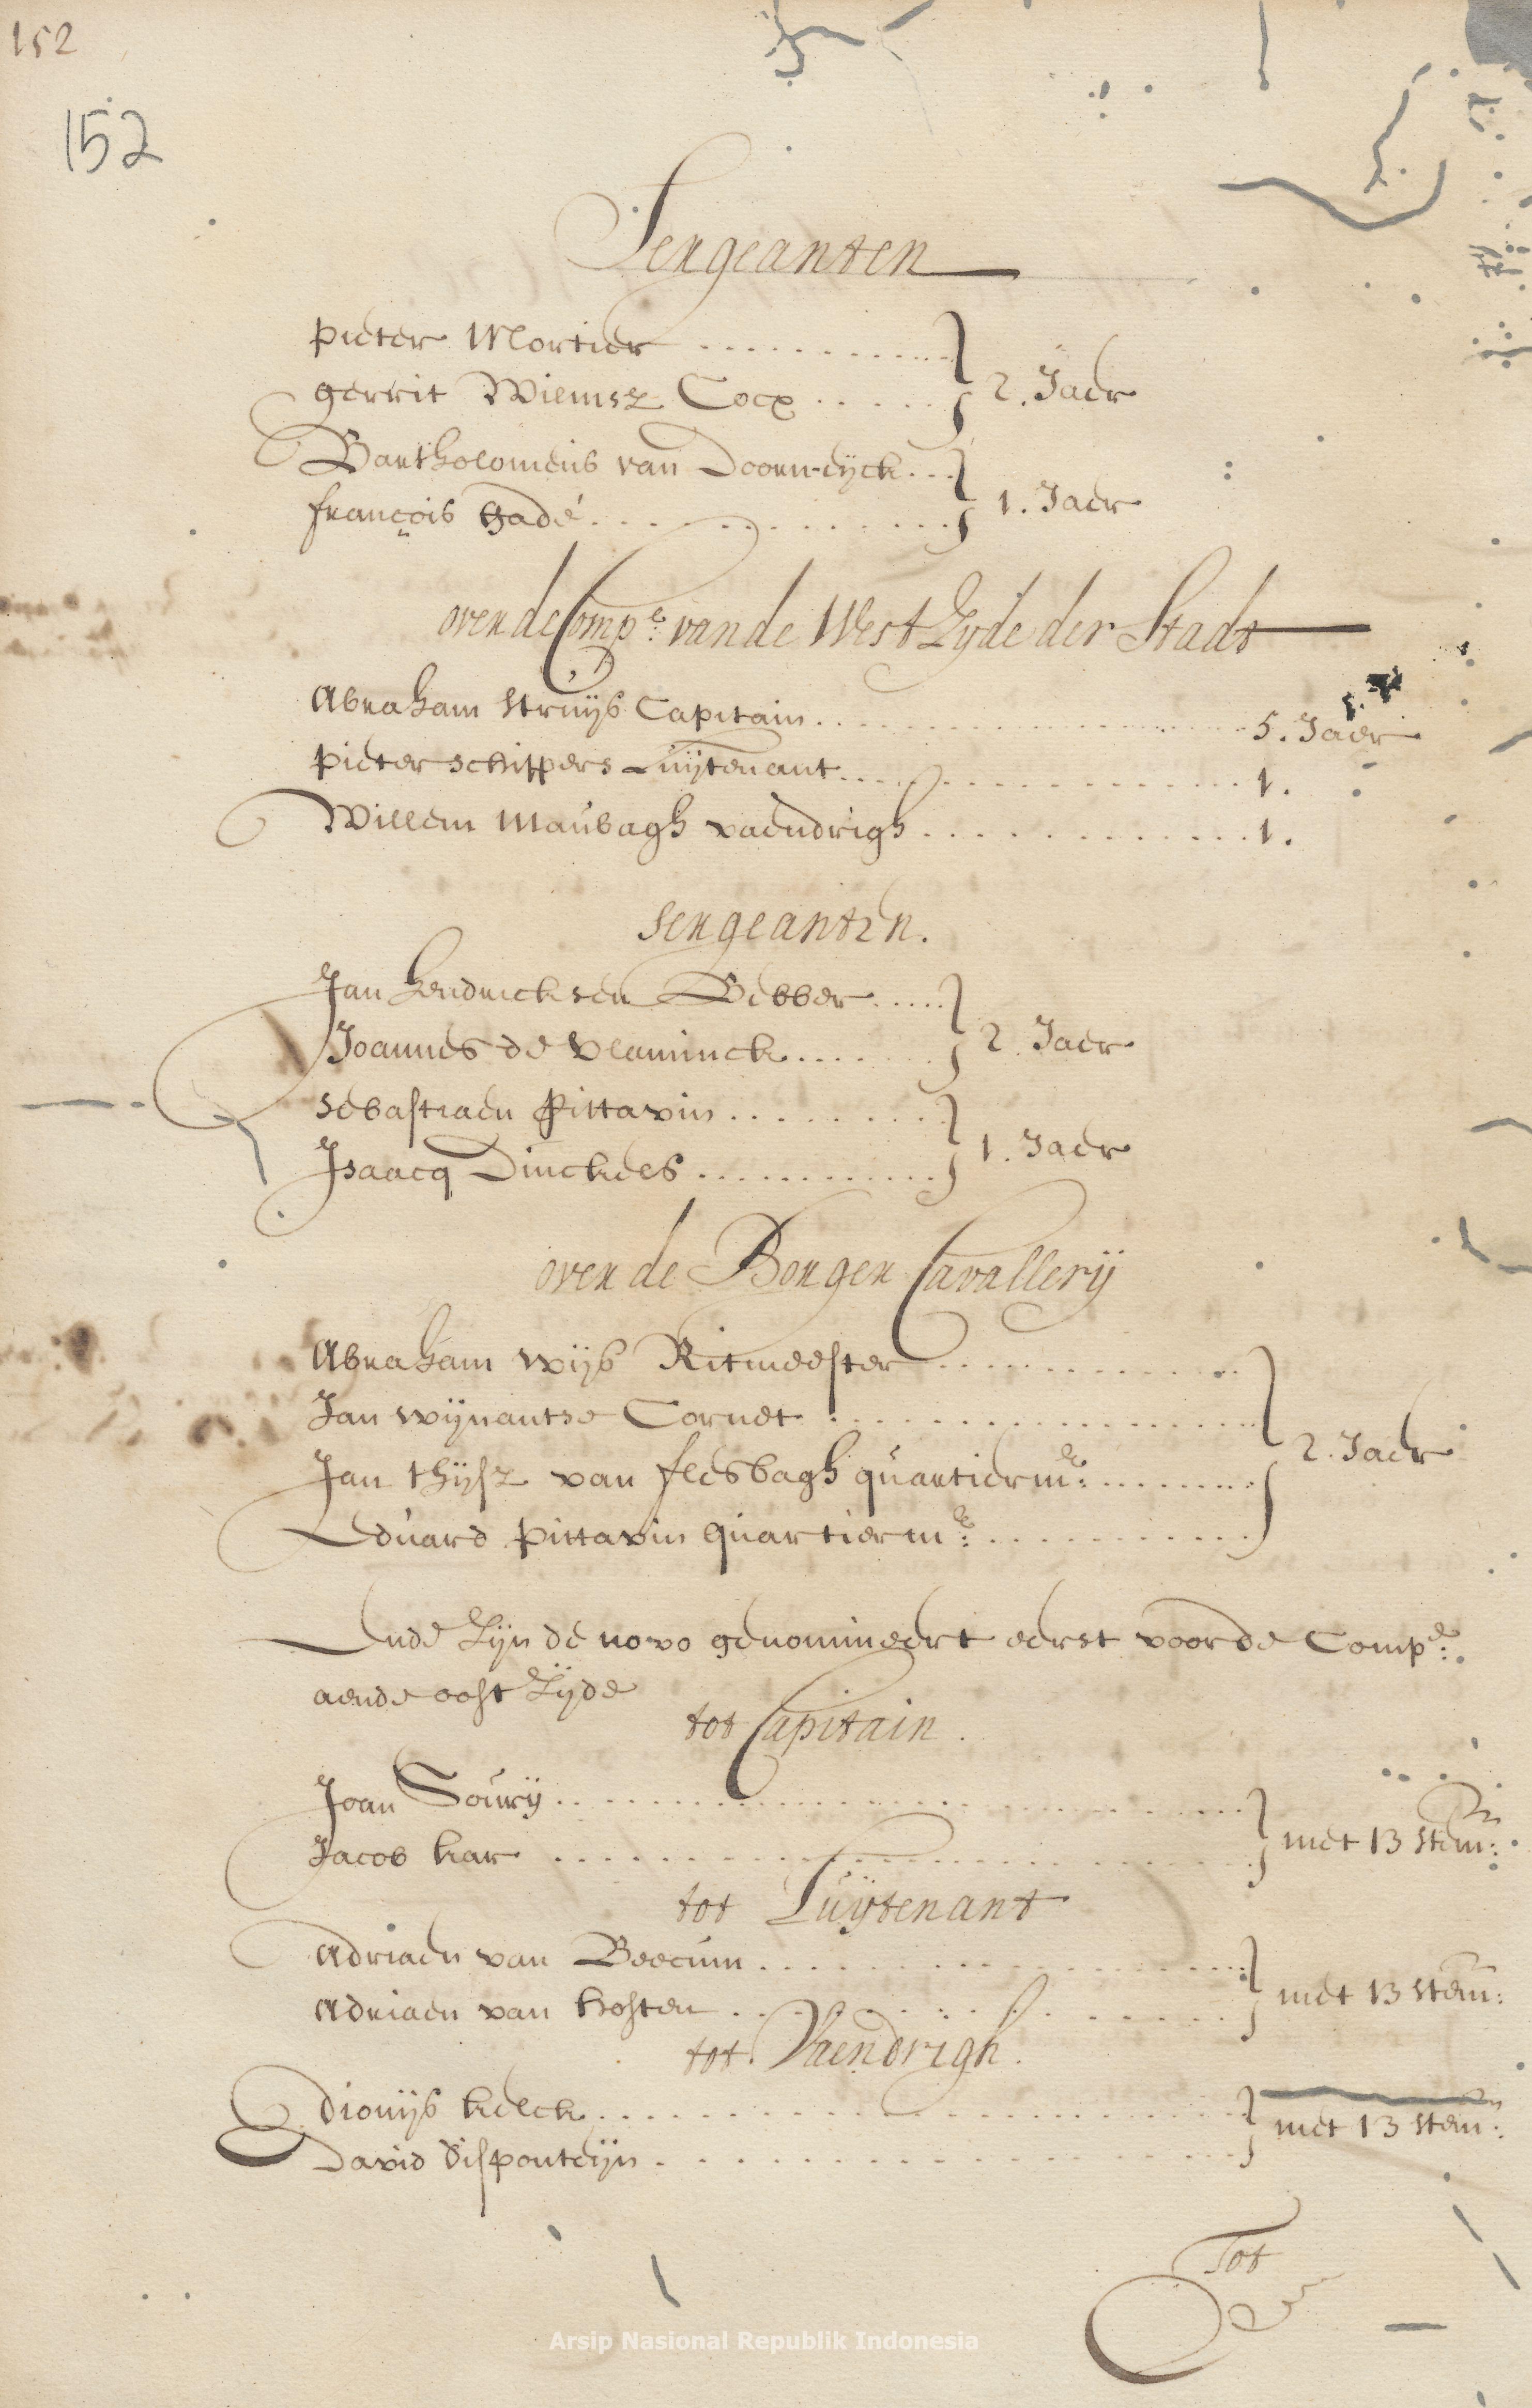 152
152
Sergeanten
Pieter Mortier
Gerrit Wilmsz Cocx
2. Jaer
Bartholomeus van Doorn-eijck
François Gadé
1. Jaer
over de Compe: van de West Zyde der Stadt
Abraham Struijs Capitain 5. Jaer
Pieter Schippers Luijtenant 1.
Willem Maubagh vaendrigh 1.
Sergeanten.
Jan Hendricksen Bebber
Joannes de Vlaminck
2. Jaer
Sebastiaen Pittavin
Isaacq Dinckels
1. Jaer
over de Borger Cavallerij
Abraham Wijs Ritmeester
Jan Wijnantse Cornet
Jan Thijsz van Flesbagh quartierme:
Eduard Pittavin quartierme:
2. Jaer
Ende Zijn de novo genomineert eerst voor de Compe:
aende oost Zijde
tot Capitain.
Joan Sourij
Jacob Kar
met 13 stemn:
tot Luijtenant
Adriaen van Beecum
Adriaen van Hosten
met 13 stem:
tot Vaendrigh.
Dionijs Kelck
David Disponteijn
met 13 stemn:
Tot
Arsip Nasional Republik Indonesia